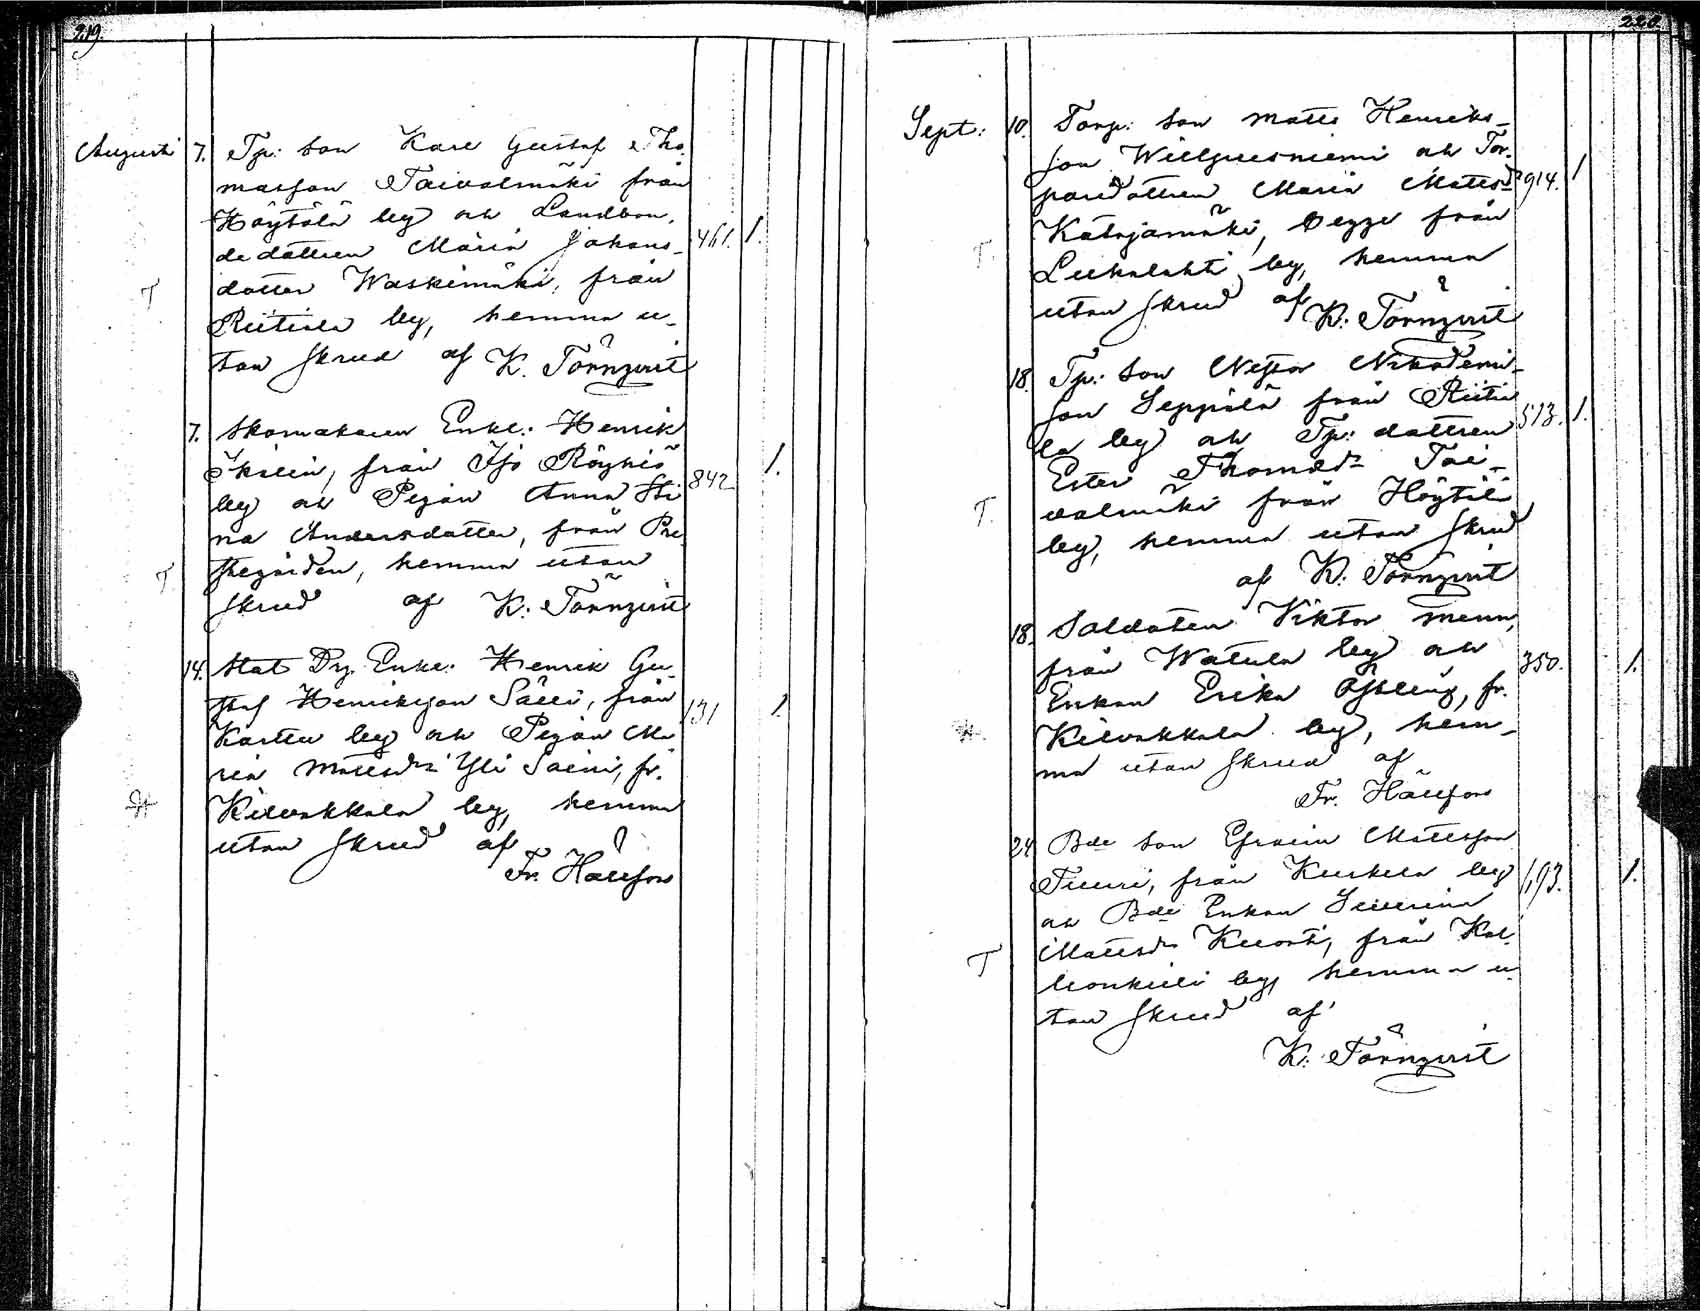 219.
Augusti 7. Tp: son Karl Gustaf Tho-
masson Taivalmäki från
Höytölä by och Landbon-
dedottren Maria Johans- 461. 1.
dotter Waskimäki, från
T
Riitiala by, hemma u-
tan skrud af K. Törnqvist
7. Skomakaren Enkl: Henrik
från Röyhiö
by och Pigan Anna Sti- 842 1.
na Andersdotter, från Pre-
stegården, hemma utan
T
skrud af K: Törnqvist
14. Stat Drg. Enkl: Henrik Gu-
staf Henriksson Sälli, från
Kärtty by och Pigan Ma- 131 1.
ria Mattsdr Yli Saini, fr.
Kilvakkala by, hemma
utan skrud af
Fr. Hällfors
220.
Sept: 10. Torp: son Matts Henriks-
son Willgrusniemi och Tor-
paredottren Maria Mattsdr 914. 1
Katajamäki, begge från
T
Luhalahti by, hemma
utan skrud af K: Törnqvist
18. Tp: son Nestor Nikodemi-
son Seppälä från Riitia-
la by och Tp: dottren 573. 1.
Ester Thomasdr Tai-
valmäki från Höytölä
T.
by, hemma utan skrud
af K: Törnqvist
18. Soldaten Viktor Menn,
från Watula by och 350. 1.
Enkan Erika fr.
Kilvakkala by, hem-
ma utan skrud af
Fr. Hällfors
24 Bde son Efraim Mattsson
Tuuri, från Kurkela by 193. 1.
och Bde Enkan Severina
Mattsdr Knuuti, från Kal-
T
lionkieli by, hemma u-
tan skrud af
K: Törnqvist